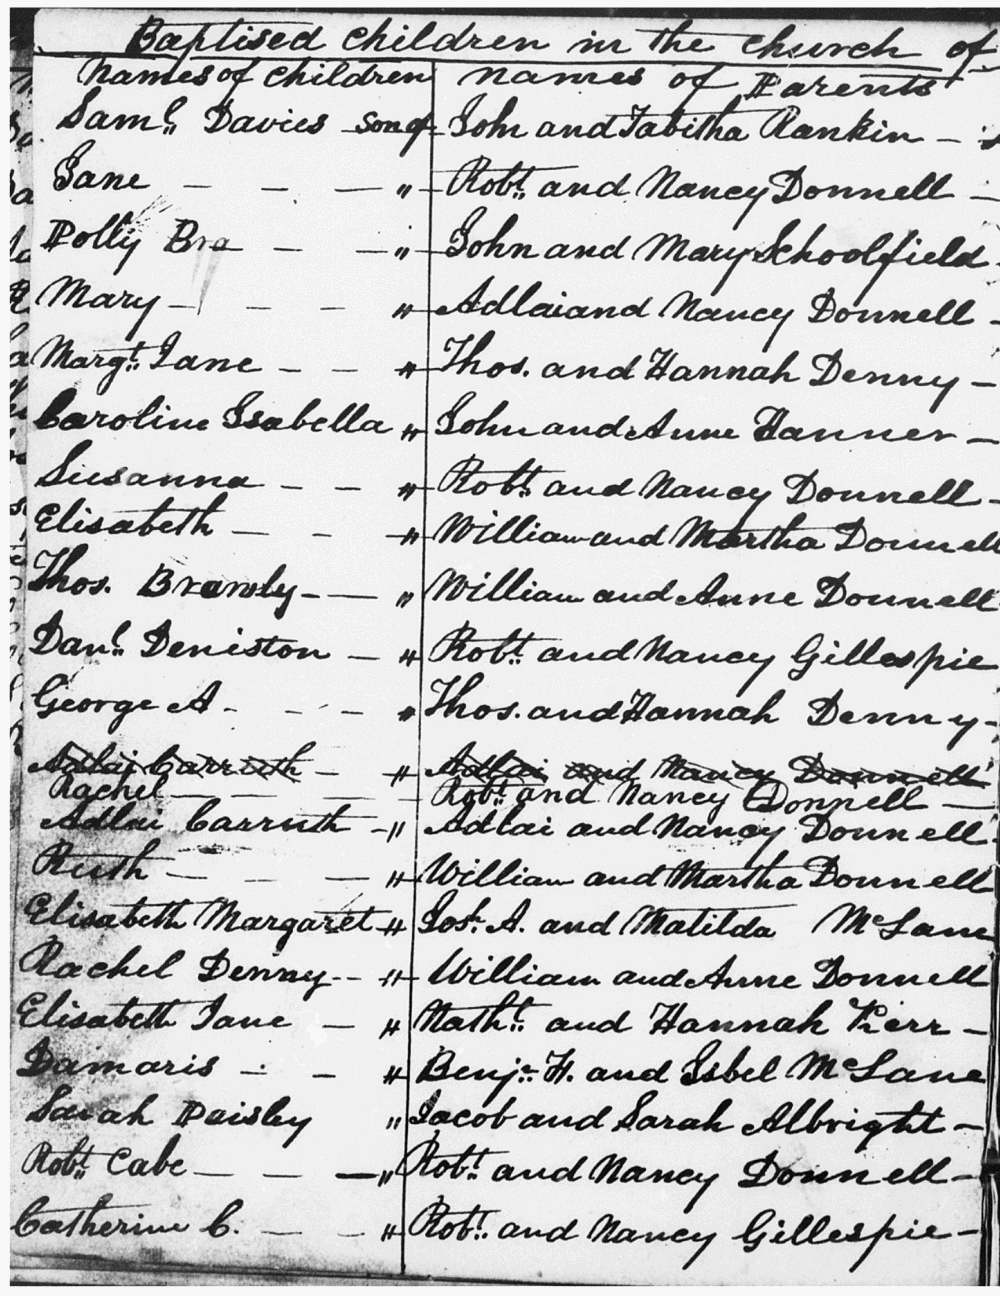 Baptised children in the church of
Names of children names of Parents
Saml. Davies son of John and Tabitha Rankin -
Jane - - - " Robt. and Nancy Donnell -
Polly Bra - - " John and Mary Schoolfield -
Mary - - - - " Adlai and Nancy Donnell -
Margt. Jane - - " Thos. and Hannah Denny -
Caroline Isabella " John and Anne Hanner -
Susanna - - " Robt. and Nancy Donnell -
Elisabeth - - - " William and Martha Donnell
Thos. Bransly - - " William and Anne Donnell
Danl. Deniston - " Robt. and Nancy Gillespie
George A - - - " Thos. and Hannah Denny -
Adlai Carruth - " Adlai and Nancy Donnell
Rachel - - - - Robt. and Nancy Donnell -
Adlai Carruth - " Adlai and Nancy Donnell -
Ruth - - - " William and Martha Donnell
Elisabeth Margaret - " Jos. A. and Matilda McLane
Rachel Denny - - " William and Anne Donnell
Elisabeth Jane - " Nathl. and Hannah Kerr -
Damaris - - " Benjn. H. and Isbel McLane
Sarah Paisley " Jacob and Sarah Albright -
Robt. Cabe - - - " Robt. and Nancy Donnell -
Catherine C. - - " Robt. and Nancy Gillespie -